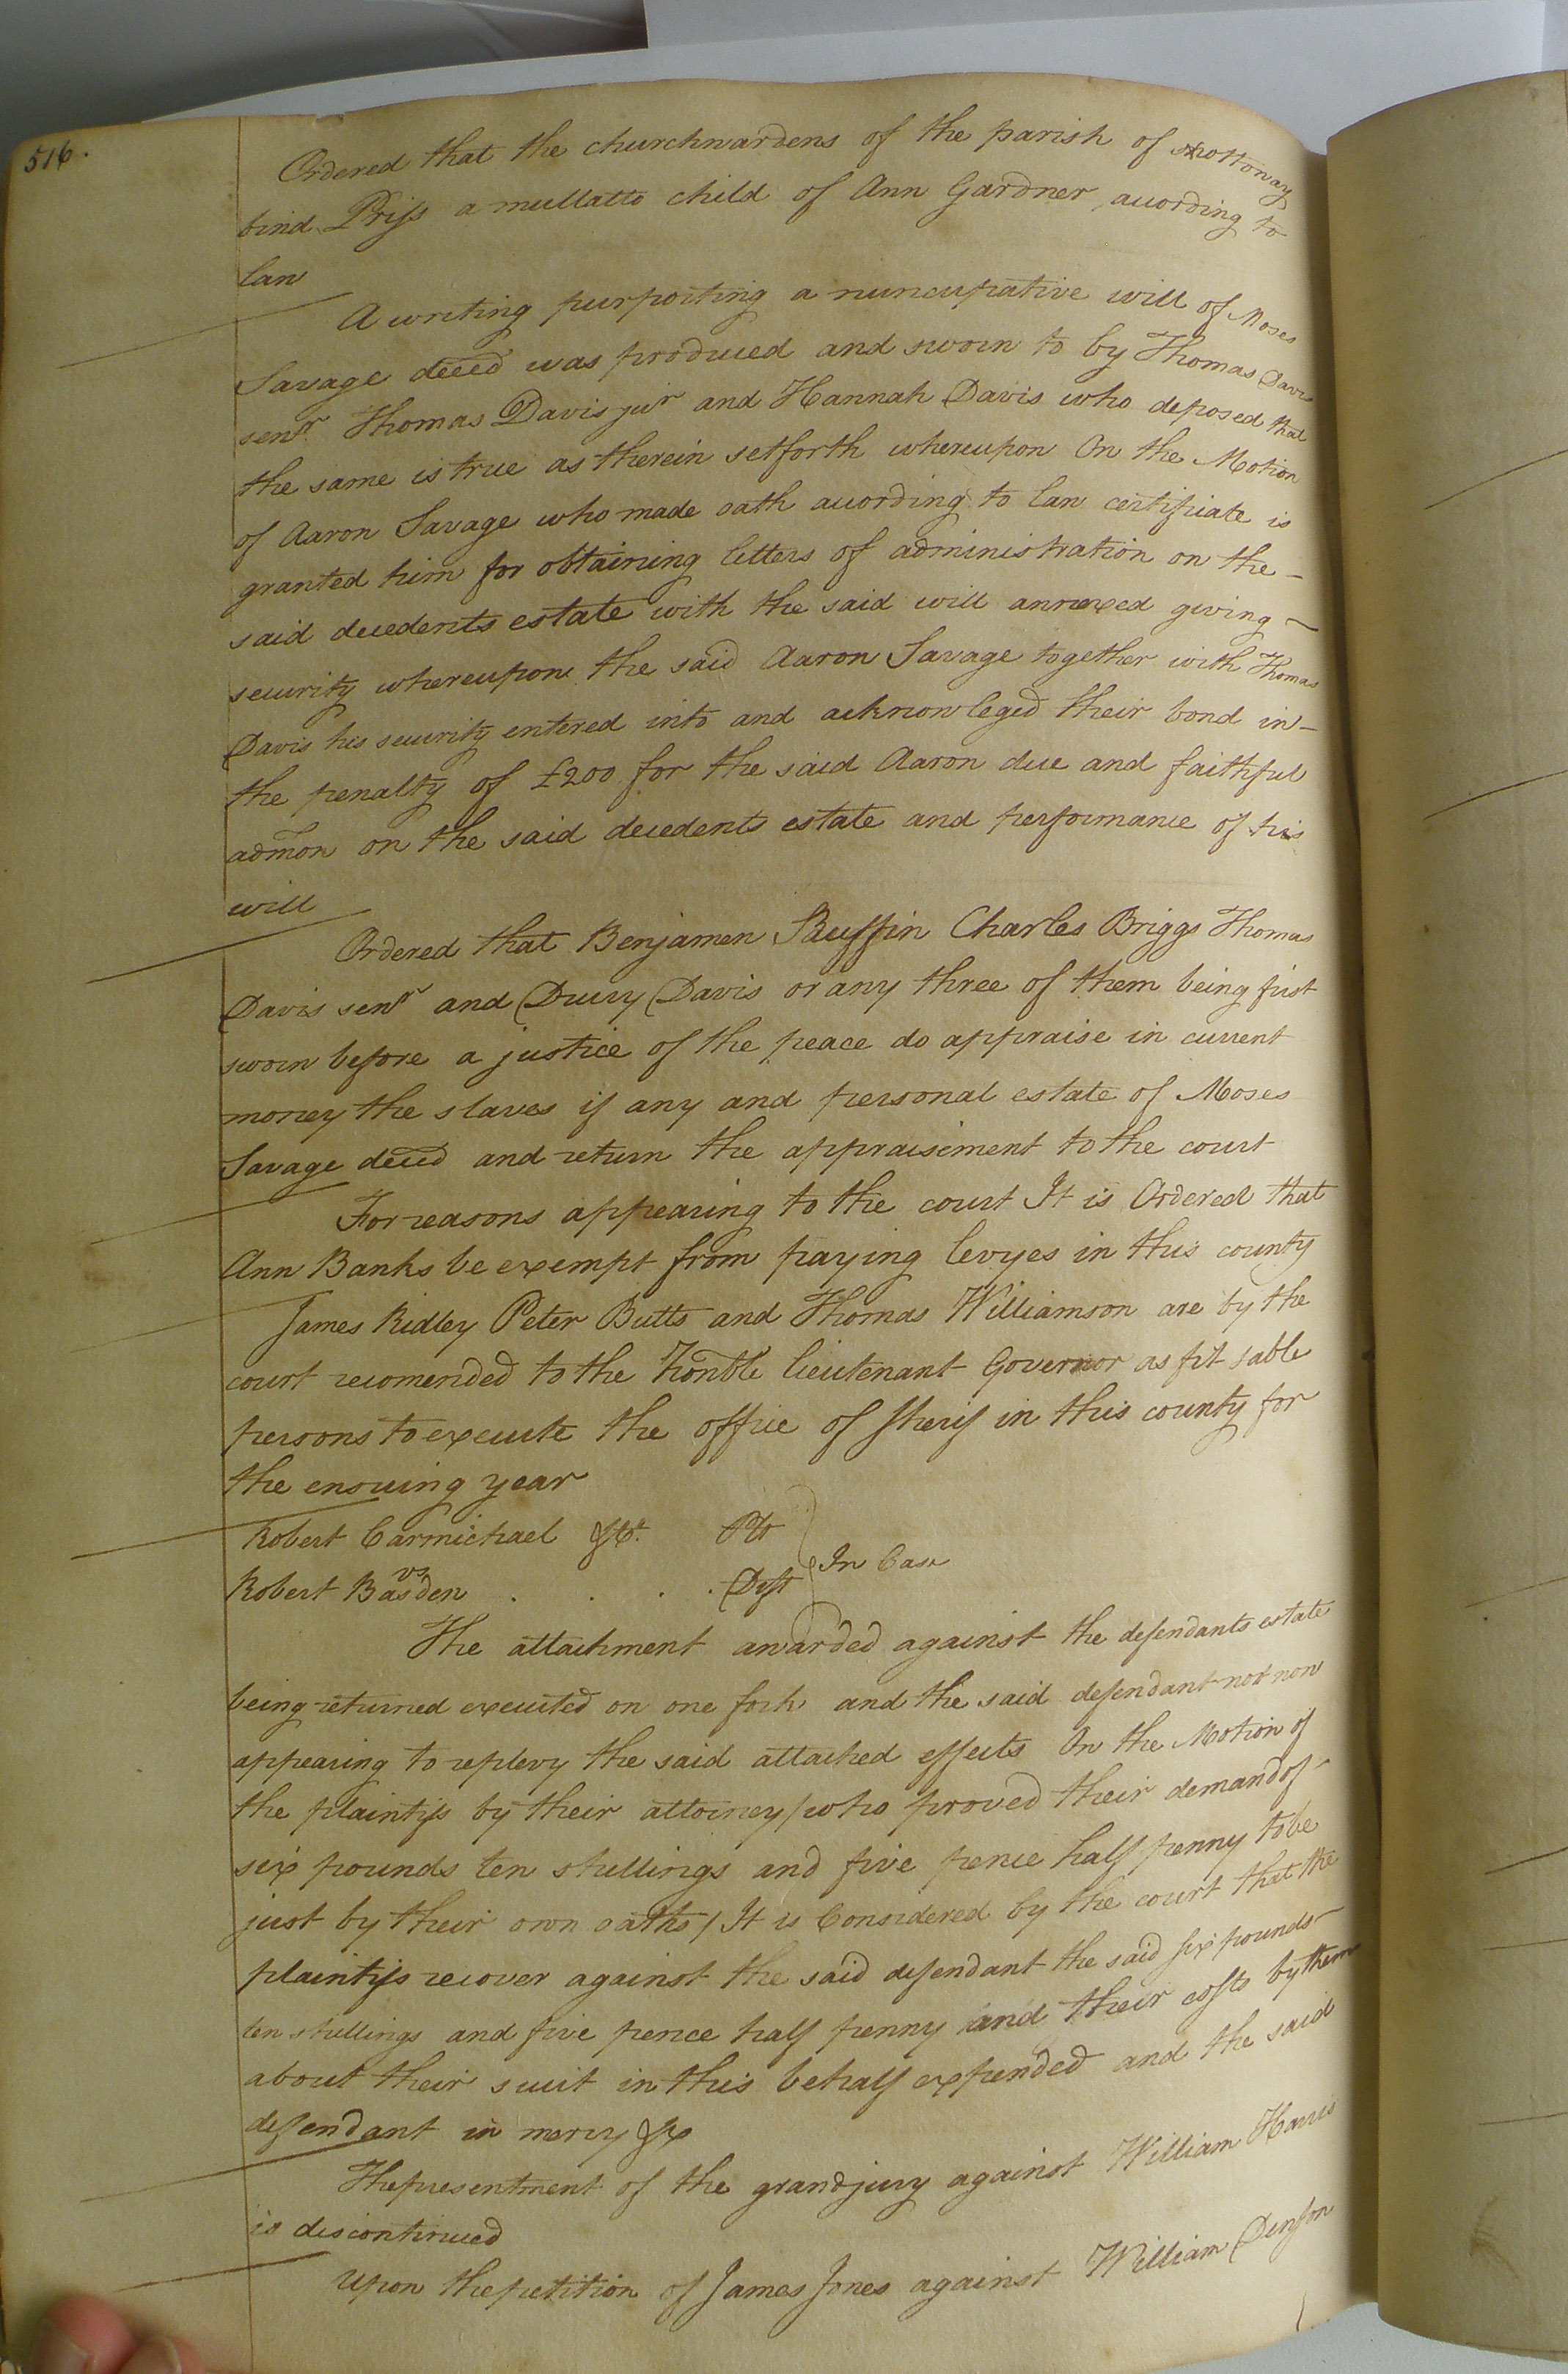 516.
Ordered that the churchwardens of the parish of Nottoway
bind Priss a mullatto child of Ann Gardner according to
law
A writing purporting a nuncupative will of Moses
Savage deced was produced and sworn to by Thomas Davis
senr. Thomas Davis jur and Hannah Davis who deposed that
the same is true as therein setforth whereupon On the Motion
of Aaron Savage who made oath according to law certificate is
granted him for obtaining letters of administration on the
said decedents estate with the said will annexed giving
security whereupon the said Aaron Savage together with Thomas
Davis his security entered into and acknowleged their bond in
the penalty of £200 for the said Aaron due and faithful
admon on the said decedents estate and performance of his
will
Ordered that Benjamen Ruffin Charles Briggs Thomas
Davis senr and Drury Davis or any three of them being first
sworn before a justice of the peace do appraise in current
money the slaves if any and personal estate of Moses
Savage deced and return the appraisement to the court
For reasons appearing to the court It is Ordered that
Ann Banks be exempt from paying levyes in this county
James Ridley Peter Butts and Thomas Williamson are by the
court recomended to the honble lieutenant Governor as fit sable
persons to execute the office of sherif in this county for
the ensuing year
Robert Carmichael &Ca. Plt
vs In Case
Robert Basden . . . . Deft
The attachment awarded against the defendants estate
being returned executed on one fork and the said defendant not now
appearing to replevy the said attached effects On the Motion of
the plaintifs by their attorney /who proved their demand of
six pounds ten shillings and five pence half penny to be
just by their own oaths/ It is Considered by the court that the
plaintifs recover against the said defendant the said six pounds
ten shillings and five pence half penny and their costs by them
about their suit in this behalf expended and the said
defendant in mercy &c
The presentment of the grandjury against William Harris
is discontinued
Upon the petition of James Jones against William Denson